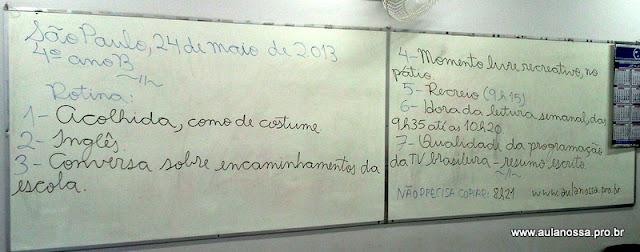 São Paulo, 24 de maio de 2.013
4º ano B
Rotina:
1- Acolhida, como de costume
2- Inglês.
3- Conversa sobre encaminhamentos da
escola.
4- Momento livre recreativo, no
pátio
5- Recreio (9h15)
6- Hora da leitura semanal, das
9h35 até as 10h20
7- Qualidade da programação
da TV brasileira - resumo escrito
NÃO PRECISA COPIAR: 8h21 www.aulanossa.pro.br
www.aulanossa.pro.br